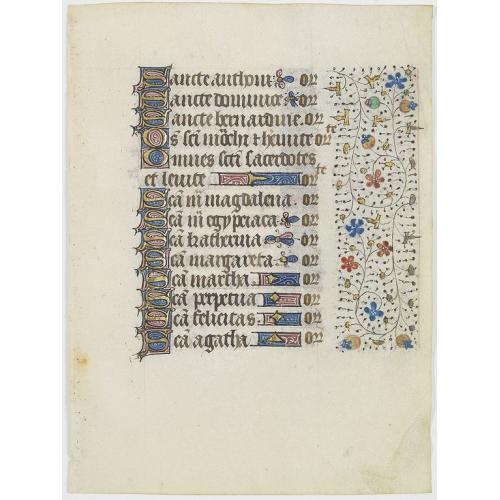 Sancte anthoni or
Sancte dominice or
Sancte bernardine. or
Os sc̄i mōchi ⁊ heremite or te
Omnes sc̄i sacerdotes
et levite or te
Scā m̄ magdalena. or
Scā m̄ egypciaca or
Scā katherina or
Scā margareta or
Scā martha. or
Scā perpetua or
Scā felicitas. or
Scā agatha. or